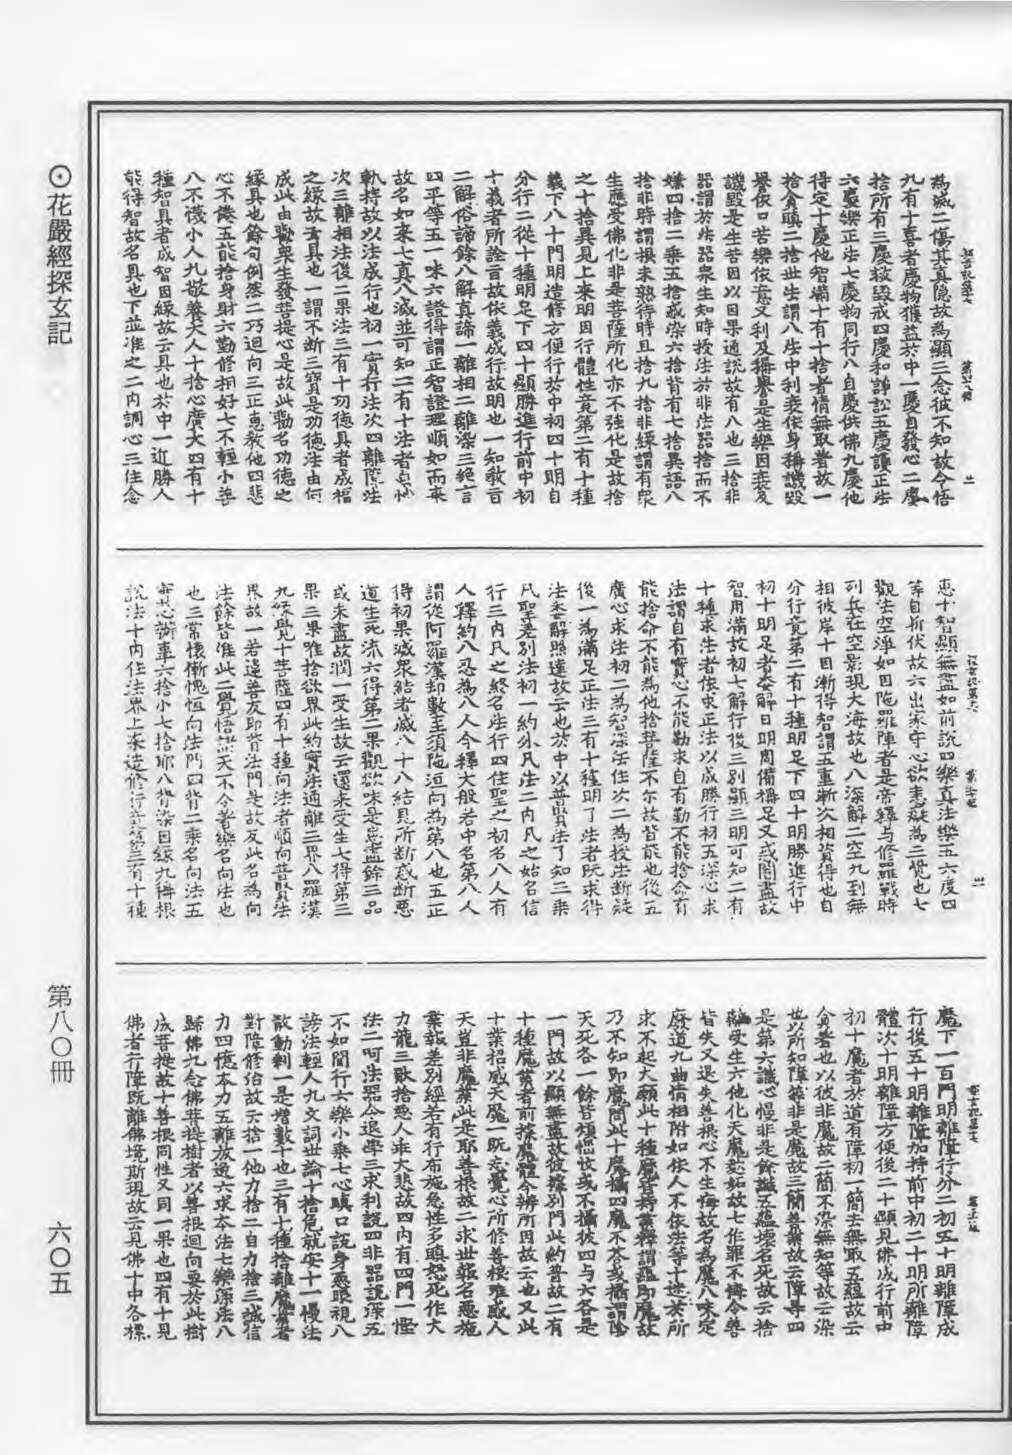 為滅二傷其真隐故為顯三念彼不知故令悟
九有十喜者慶物獲益於中一慶自發心二慶
捨所有三慶救毀戒四慶和諍訟五慶護正法
六慶樂正法七慶物同行八自慶供佛九慶他
得定十慶他智滿十有十捨者情無取著故一
捨貪瞋二捨世法謂八法中利衰依身稱譏毀
譽依口苦樂依意又利及稱譽是生樂因衰及
譏毀是生苦因以因果通說故有八也三捨非
器謂於非器眾生知時授法於非法器捨而不
嫌四捨二乘五捨惑染六捨背有七捨異語八
捨非時謂損未熟待時且捨九捨非緣謂有眾
生應受佛化非是菩薩所化亦不强化是故捨
之十捨異見上來明因行體性竟第二有十種
義下八十門明造修方便行於中初四十明自
分行二從十種明足下四十顯勝進行前中初
十義者所詮言故依義成行故明也一知教言
二解俗諦餘八解真諦一離相二離染三絕言
四平等五一味六證得謂正智證理順如而來
故名如來七真八滅並可知二有十法者自性
軌持故以法成行也初一實行法次四離障法
次三離相法後二果法三有十功德具者成福
之緣故云具也一謂不斷三寶是功德法由何
成此由勸眾生發菩提心是故此勸名功德之
緣具也餘句例然二乃迴向三正惠教他四悲
心不倦五能捨身財六勤修相好七不輕小善
八不慢小人九敬養大人十捨心廣大四有十
種智具者成智因緣故云具也於中一近勝人
能得智故名具也下並准之二內調心三住念
惠十智顯無盡如前說四樂真法樂五六度四
等自折伏故六出家守心欲恚疑為三覺也七
觀法空淨如因陁羅陣者是帝釋与修羅戰時
列兵在空影現大海故也八深解二空九到無
相彼岸十因漸得智謂五重漸次相資得也自
分行竟第二有十種明足下四十明勝進行中
初十明足者委解日明周備橋足又惑闇盡故
智用滿故初七解行後三別顯三明可知二有
十種求法者依求正法以成勝行初五深心求
法謂自有實心不能勤求自有勤不能捨命有
能捨命不能為他捨菩薩不尔故皆能也後五
廣心求法初二為智深法住次二為授法斷疑
後一為滿足正法三有十種明了法者既求得
法委解照達故云也於中以普賢法了知三乘
凡聖差別法初一約外凡法二內凡之始名信
行三內凡之終名法行四住聖之初名八人有
人釋約八忍為八人今釋大般若中名第八人
謂從阿羅漢却數至須陁洹向為第八也五正
得初果滅眾結者滅八十八結見所斷惑斷惡
道生死流六得第二果觀欲味是患盡餘三品
或未盡故潤一受生故云還來受生七得第三
果三果唯捨欲界此約實法通離三界八羅漢
九緣覺十菩薩四有十種向法者順向普賢法
界故一若遠善友即背法門是故友此名為向
法餘皆准此二覺悟諸天不令著樂名向法也
也三常懷慚愧恆向法門四背二乘名向法五
審思辦事六捨小七捨邪八背染因緣九稱根
說法十內住法界上來造修行竟第三有十種
魔下一百門明離障行分二初五十明離障成
行後五十明離障加持前中初二十明所離障
體次十明離障方便後二十顯見佛成行前中
初十魔者於道有障初一簡去無取五蘊故云
貪著也以彼非魔故二簡不染無知等故云染
也以所知障等非是魔故三簡善業故云障导四
是第六識心慢非是餘識五蘊壞名死故云捨
離受生六他化天魔慈妬故七作罪不悔令善
皆失又退失善根心不生悔故名為魔八味定
廢道九曲情相附如依人不依法等十迷於所
求不起大願此十種魔若將業釋謂蘊即魔故
乃不知即魔問此十魔攝四魔不答或攝謂陰
天死各一餘皆煩惱攸或不攝彼四与六各是
一門故以顯無盡故彼據別門此約普故二有
十種魔業者前據魔體今辨所因故云也又此
十業招感天魔一既忘覺心所修善根唯感人
天豈非魔業此是耶善根故二求世報名惡施
業報差別經若有行布施急性多瞋怒死作大
力龍三默捨惡人乖大悲故四內有四門一慳
法二呵法器令退學三求利說四非器說深五
不如聞行六樂小乘七心瞋口說身惡眼視八
謗法輕人九文詞世論十捨危就安十一慢法
散動剩一是增數十也三有十種捨離魔業者
對障修治故云捨一他力捨二自力捨三誠信
力四憶本力五離放逸六求本法七樂深法八
歸佛九念佛菩提樹者以善根迴向要於此樹
成菩提故十善根同性又同一果也四有十見
佛者行障既離佛境斯現故云見佛十中各標
⊙花嚴經探玄記
第八〇冊
六〇五